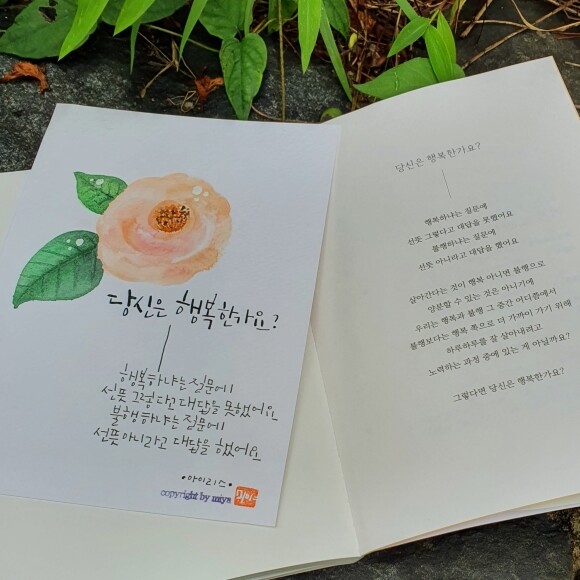 당신은 행복한가요?
행복하냐는 질문에
선뜻 그렇다고 대답을 못했어요
불행하냐는 질문에
선뜻 아니라고 대답을 했어요
•아이리스•
copyright by miya
당신은 행복한가요?
행복하냐는 질문에
선뜻 그렇다고 대답을 못했어요
불행하냐는 질문에
선뜻 아니라고 대답을 했어요
살아간다는 것이 행복 아니면 불행으로
양분할 수 있는 것은 아니기에
우리는 행복과 불행 그 중간 어디쯤에서
불행보다는 행복 쪽으로 더 가까이 가기 위해
하루하루를 잘 살아내려고
노력하는 과정 중에 있는 게 아닐까요?
그렇다면 당신은 행복한가요?